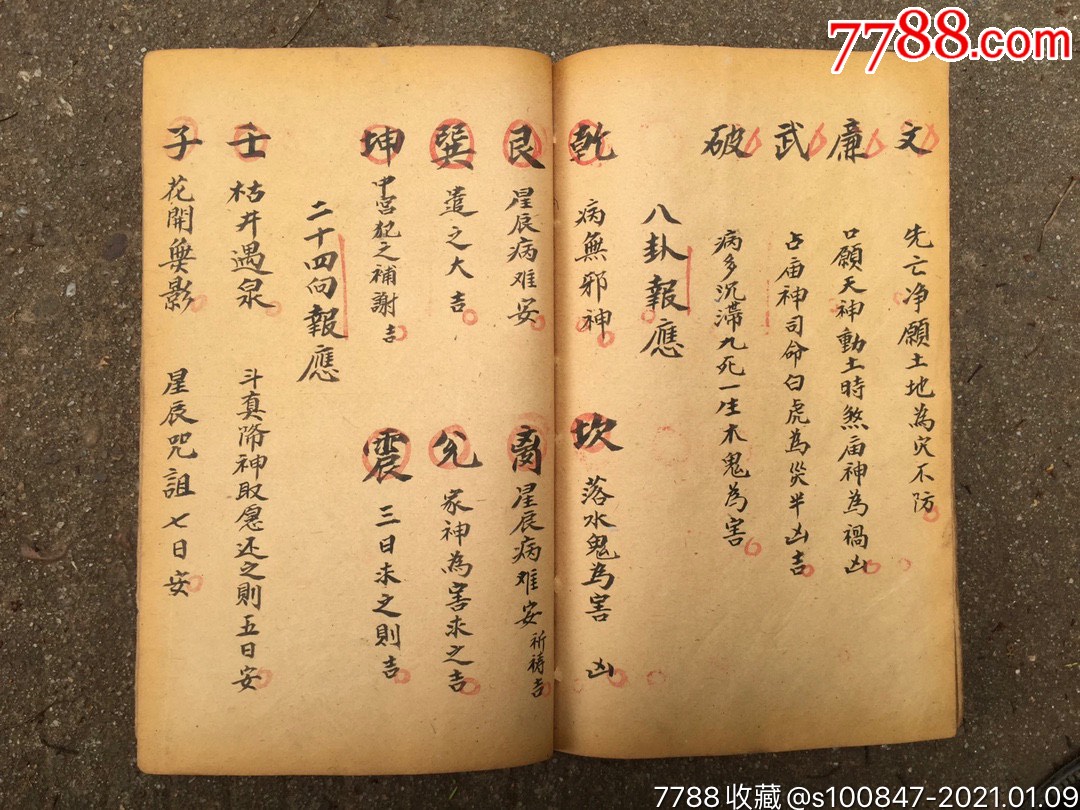 7788.com
文 先亡净願土地為穴不防
廉 口願天神動土時煞庙神為禍凶
武 占庙神司命白虎為災半凶吉
破 病多沉滯九死一生木鬼為害
八卦報應
乾 病無邪神 坎 落水鬼為害 凶
艮 星辰病难安 离 星辰病难安祈禱吉
巽 遣之大吉 兑 家神為害求之吉
坤 中宫犯之補謝吉 震 三日求之則吉
二十四向報應
壬 枯井遇泉 斗真降神取愿还之則五日安
子 花開無影 星辰咒詛七日安
7788收藏@s100847-2021.01.09